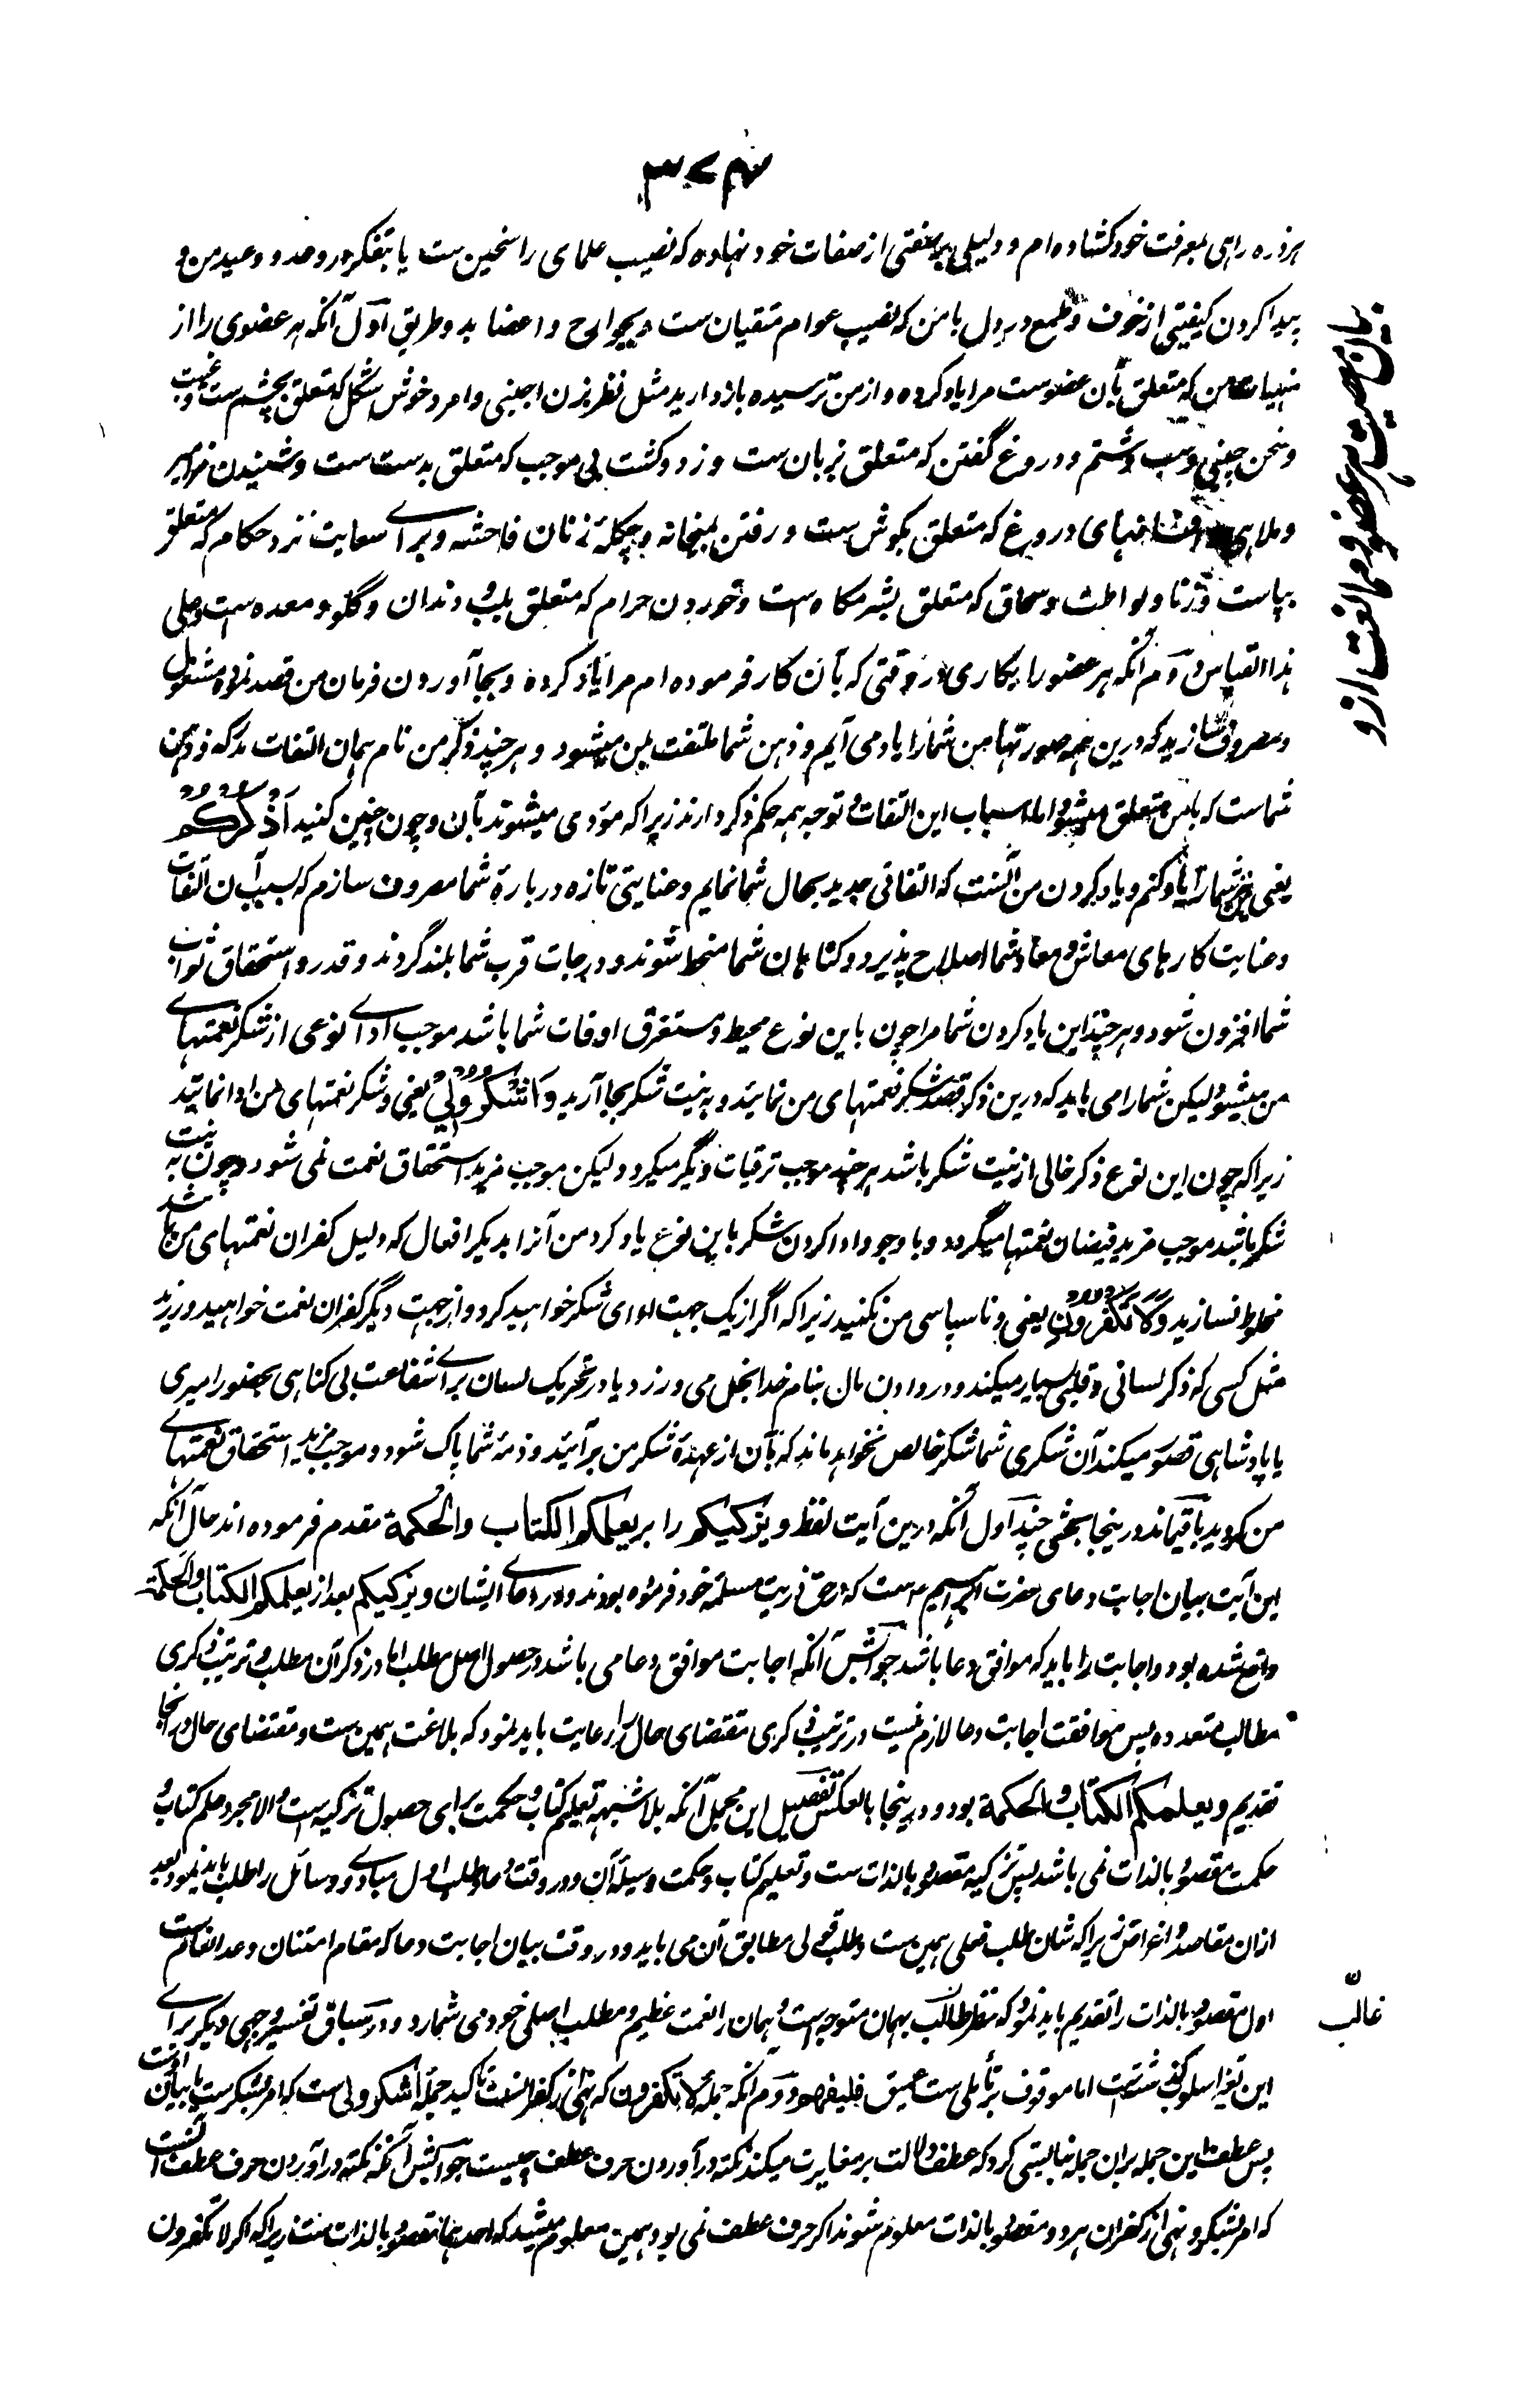 هر ذره راهی بمعرفت خود کشاده‌ام و دلیلی بر صفتی از صفات خود نهاده که نصیب علمای راسخین ست یا بتفکر در وعد و وعید من و
پیدا کردن کیفیتی از خوف و طمع در دل با من که نصیب عوام متقیان ست و بجوارح و اعضا بدو طریق اول آنکه هر عضوی را از
منهیات من که متعلق بآن عضوست مرا یاد کرده و از من ترسیده باز دارید مثل نظر بزن اجنبی و امرد خوش شکل که متعلق بچشم ست و غیبت
و سخن چینی و سب و شتم و دروغ گفتن که متعلق بزبان ست و زد و کشت بی موجب که متعلق بدست ست و شنیدن مزامیر
و ملاهی و افسانهای دروغ که متعلق بگوش ست و رفتن ببتخانه و چکلهٔ زنان فاحشه و برای سعایت نزد حکام که متعلق
بپاست و زنا و لواطت و سحاق که متعلق بشرمگاه است و خوردن حرام که متعلق بلب و دندان و گلو و معده است و علی
هذا القیاس دوم آنکه هر عضو را بکاری در وقتی که بآن کار فرموده‌ام مرا یاد کرده و بجا آوردن فرمان من قصد نموده مشغول
و مصروف سازید که درین همه صورتها من شما را یاد می آیم و ذهن شما ملتفت بمن میشود و هر چند ذکر من نام همان التفات مدرکه و ذهن
شماست که بامن متعلق میشود اما اسباب این التفات و توجه همه حکم ذکر دارند زیرا که مؤدی میشوند بآن و چون چنین کنید اَذْكُرْكُمْ
یعنی من شما را یاد کنم و یاد کردن من آنست که التفاتی جدید بحال شما نمایم و عنایتی تازه دربارهٔ شما مصروف سازم که بسبب آن التفات
و عنایت کارهای معاش و معاد شما اصلاح پذیرد و گناهان شما منحط شوند و درجات قرب شما بلند گردند و قدر و استحقاق ثواب
شما افزون شود و هر چند این یاد کردن شما مرا چون باین نوع محیط و مستغرق اوقات شما باشد موجب ادای نوعی از شکر نعمتهای
من میشود لیکن شما را می باید که درین ذکر قصد شکر نعمتهای من نمائید و به نیت شکر بجا آرید وَاشْكُرُوا لِي یعنی و شکر نعمتهای من ادا نمائید
زیرا که چون این نوع ذکر خالی از نیت شکر باشد هر چند موجب ترقیات دیگر میگردد لیکن موجب مزید استحقاق نعمت نمی شود و چون به نیت
شکر باشد موجب مزید فیضان نعمتها میگردد و باوجود ادا کردن شکر باین نوع یاد کرد من آنرا بدیگر افعال که دلیل کفران نعمتهای من باشد
مخلوط نسازید وَلَا تَكْفُرُونِ یعنی و ناسپاسی من نکنید زیرا که اگر از یک جهت ادای شکر خواهید کرد و از جهت دیگر کفران نعمت خواهید ورزید
مثل کسی که ذکر لسانی و قلبی بسیار میکند و در دادن مال بنام خدا بخل می ورزد یا در تحریک لسان برای شفاعت بی گناهی بحضور امیری
یا پادشاهی قصور میکند آن شکری شما شکر خالص نخواهد ماند که بآن از عهدهٔ شکر من برآئید و ذمهٔ شما پاک شود و موجب مزید استحقاق نعمتهای
من گردید باقیماند درینجا بحثی چند اول آنکه درین آیت لفظ ویزکیکم را بر یعلمکم الکتاب والحکمة مقدم فرموده اند حال آنکه
این آیت بیان اجابت دعای حضرت ابراهیم است که در حق ذریت مسلمه خود فرموده بودند و در دعای ایشان ویزکیکم بعد از یعلمکم الکتاب والحکمة
واقع شده بود و اجابت را باید که موافق دعا باشد جوابش آنکه اجابت موافق دعا می باشد در حصول اصل مطلب اما در ذکر آن مطلب و ترتیب ذکری
مطالب متعدده پس موافقت اجابت و دعا لازم نیست در ترتیب ذکری مقتضای حال را رعایت باید نمود که بلاغت همین ست و مقتضای حال در آنجا
تقدیم ویعلمکم الکتاب والحکمة بود و درینجا بالعکس تفصیل این مجمل آنکه بلاشبهه تعلیم کتاب و حکمت برای حصول تزکیه است والا مجرد علم کتاب و
حکمت مقصود بالذات نمی باشد پس تزکیه مقصود بالذات ست و تعلیم کتاب و حکمت وسیلهٔ آن و در وقت دعا و طلب اول مبادی و وسائل را طلب باید نمود بعد
ازان مقاصد و اغراض زیرا که شان طلب فعلی همین ست و طلب قولی مطابق آن می باید و در وقت بیان اجابت دعا که مقام امتنان و عد انعام ست
اول مقصود بالذات را تقدیم باید نمود که نظر طالب بهمان متوجه است و همان را نعمت عظیم و مطلب اصلی خود می شمارد و در سباق تفسیر وجهی دیگر برای
این تغیر اسلوب گذشت اما موقوف بر تأملی ست عمیق فلیفهم دوم آنکه جمله لا تکفرون که نهی از کفر است تاکید جملهٔ اشکروا لی ست که امر بشکرست یا بیان اوست
پس عطف این جمله بران جمله نبایستی کرد که عطف دلالت بر مغایرت میکند نکته در آوردن حرف عطف چیست جوابش آنکه نکته در آوردن حرف عطف آنست
که امر بشکر و نهی از کفران هر دو مقصود بالذات معلوم شوند اگر حرف عطف نمی بود همین معلوم میشد که احدهما مقصود بالذات ست زیرا که اگر لا تکفرون
بیان معصیت هر عضو و ممانعت ازو
غالب